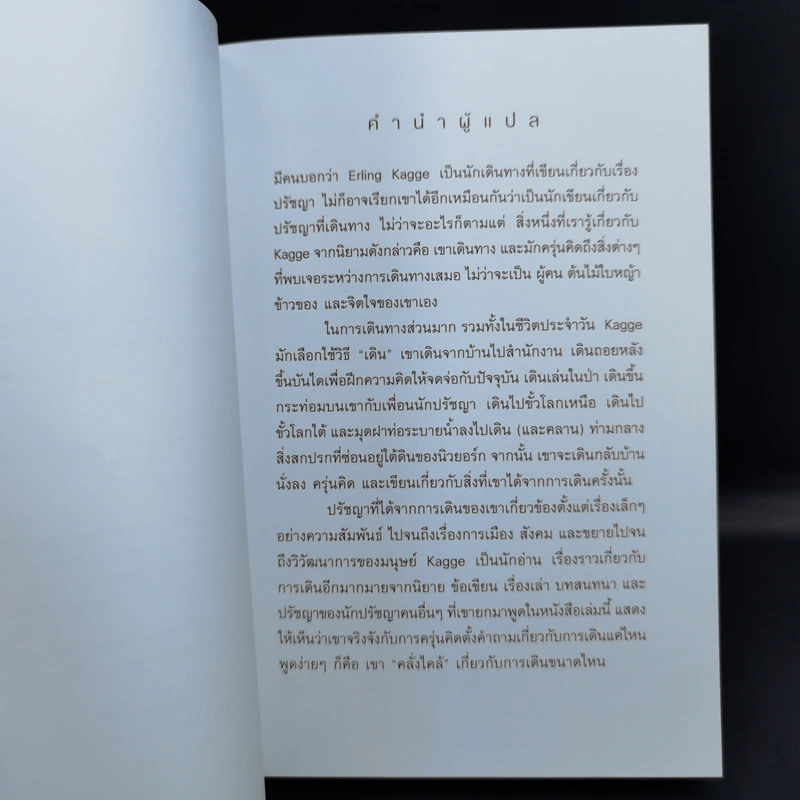 คำนำผู้แปล
มีคนบอกว่า Erling Kagge เป็นนักเดินทางที่เขียนเกี่ยวกับเรื่อง
ปรัชญา ไม่ก็อาจเรียกเขาได้อีกเหมือนกันว่าเป็นนักเขียนเกี่ยวกับ
ปรัชญาที่เดินทาง ไม่ว่าจะอะไรก็ตามแต่ สิ่งหนึ่งที่เรารู้เกี่ยวกับ
Kagge จากนิยามดังกล่าวคือ เขาเดินทาง และมักครุ่นคิดถึงสิ่งต่างๆ
ที่พบเจอระหว่างการเดินทางเสมอ ไม่ว่าจะเป็น ผู้คน ต้นไม้ใบหญ้า
ข้าวของ และจิตใจของเขาเอง
ในการเดินทางส่วนมาก รวมทั้งในชีวิตประจำวัน Kagge
มักเลือกใช้วิธี "เดิน" เขาเดินจากบ้านไปสำนักงาน เดินถอยหลัง
ขึ้นบันไดเพื่อฝึกความคิดให้จดจ่อกับปัจจุบัน เดินเล่นในป่า เดินขึ้น
กระท่อมบนเขากับเพื่อนนักปรัชญา เดินไปขั้วโลกเหนือ เดินไป
ขั้วโลกใต้ และมุดฝาท่อระบายน้ำลงไปเดิน (และคลาน) ท่ามกลาง
สิ่งสกปรกที่ซ่อนอยู่ใต้ดินของนิวยอร์ก จากนั้น เขาจะเดินกลับบ้าน
นั่งลง ครุ่นคิด และเขียนเกี่ยวกับสิ่งที่เขาได้จากการเดินครั้งนั้น
ปรัชญาที่ได้จากการเดินของเขาเกี่ยวข้องตั้งแต่เรื่องเล็กๆ
อย่างความสัมพันธ์ ไปจนถึงเรื่องการเมือง สังคม และขยายไปจน
ถึงวิวัฒนาการของมนุษย์ Kagge เป็นนักอ่าน เรื่องราวเกี่ยวกับ
การเดินอีกมากมายจากนิยาย ข้อเขียน เรื่องเล่า บทสนทนา และ
ปรัชญาของนักปรัชญาคนอื่นๆ ที่เขายกมาพูดในหนังสือเล่มนี้ แสดง
ให้เห็นว่าเขาจริงจังกับการครุ่นคิดตั้งคำถามเกี่ยวกับการเดินแค่ไหน
พูดง่ายๆ ก็คือ เขา "คลั่งไคล้" เกี่ยวกับการเดินขนาดไหน